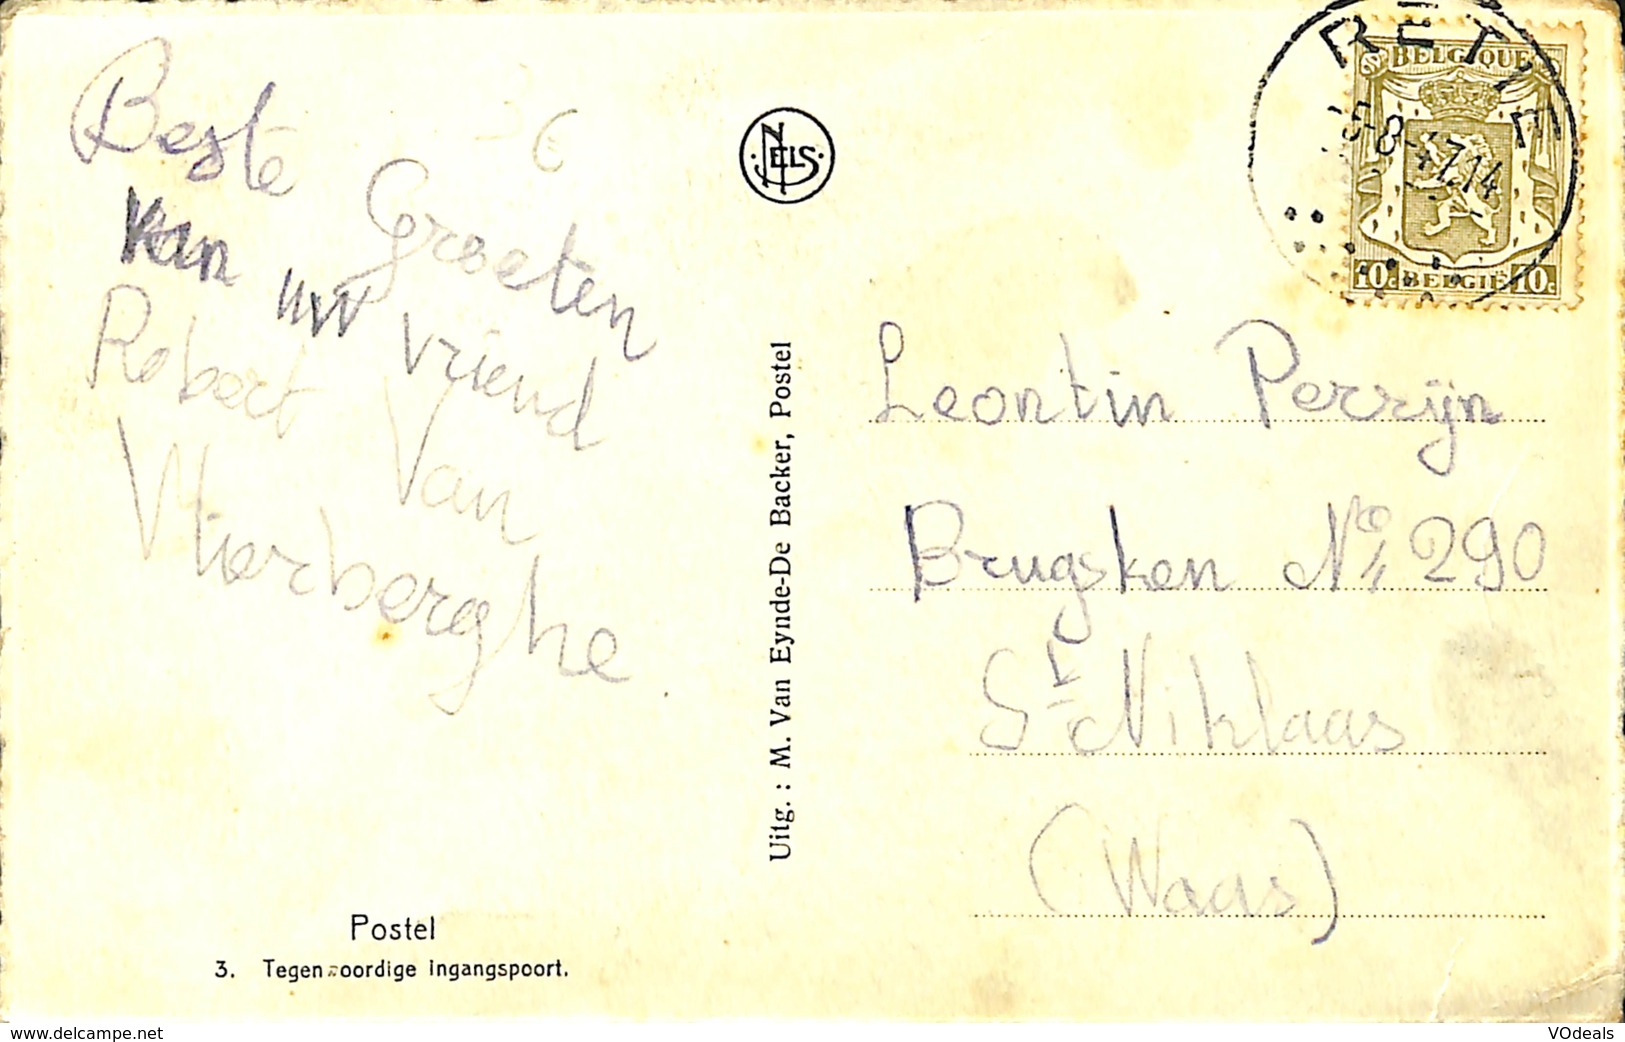 Beste Groeten
van uw vriend
Robert Van
Mierberghe
3 €
Postel
3. Tegenwoordige ingangspoort.
NELS
Uitg. : M. Van Eynde-De Backer, Postel
RETIE
5-8-47.14
BELGIQUE
10c BELGIË 10c
Leontin Perrijn
Brugsken No 290
St Niklaas
(Waas)
www.delcampe.net
VOdeals